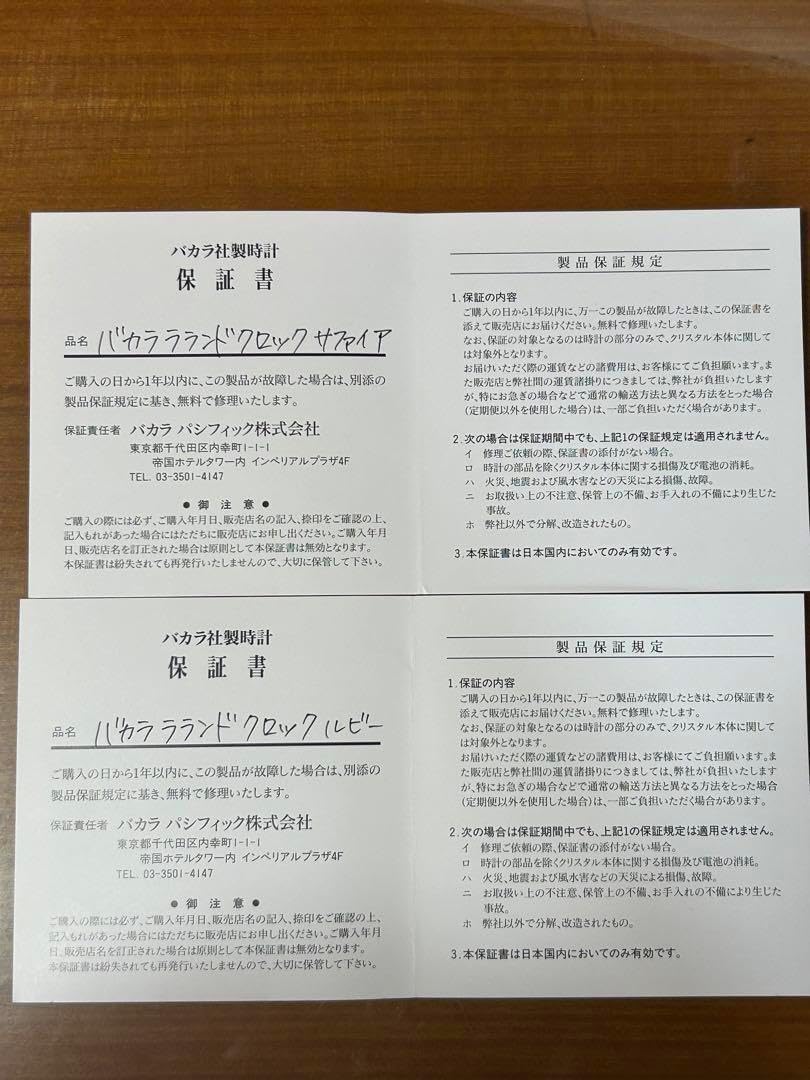 バカラ社製時計
保証書
品名 バカラ ラランドクロック サファイア
ご購入の日から1年以内に、この製品が故障した場合は、別添の
製品保証規定に基き、無料で修理いたします。
保証責任者 バカラ パシフィック株式会社
東京都千代田区内幸町1-1-1
帝国ホテルタワー内 インペリアルプラザ4F
TEL. 03-3501-4147
● 御 注 意 ●
ご購入の際には必ず、ご購入年月日、販売店名の記入、捺印をご確認の上、
記入もれがあった場合にはただちに販売店にお申し出ください。ご購入年月
日、販売店名を訂正された場合は原則として本保証書は無効となります。
本保証書は紛失されても再発行いたしませんので、大切に保管して下さい。
製品保証規定
1. 保証の内容
ご購入の日から1年以内に、万一この製品が故障したときは、この保証書を
添えて販売店にお届けください。無料で修理いたします。
なお、保証の対象となるのは時計の部分のみで、クリスタル本体に関して
は対象外となります。
お届けいただく際の運賃などの諸費用は、お客様にてご負担願います。ま
た販売店と弊社間の運賃諸掛りにつきましては、弊社が負担いたします
が、特にお急ぎの場合などで通常の輸送方法と異なる方法をとった場合
(定期便以外を使用した場合)は、一部ご負担いただく場合があります。
2. 次の場合は保証期間中でも、上記1の保証規定は適用されません。
イ 修理ご依頼の際、保証書の添付がない場合。
ロ 時計の部品を除くクリスタル本体に関する損傷及び電池の消耗。
ハ 火災、地震および風水害などの天災による損傷、故障。
ニ お取扱い上の不注意、保管上の不備、お手入れの不備により生じた
事故。
ホ 弊社以外で分解、改造されたもの。
3. 本保証書は日本国内においてのみ有効です。
バカラ社製時計
保証書
品名 バカラ ラランド クロック ルビー
ご購入の日から1年以内に、この製品が故障した場合は、別添の
製品保証規定に基き、無料で修理いたします。
保証責任者 バカラ パシフィック株式会社
東京都千代田区内幸町1-1-1
帝国ホテルタワー内 インペリアルプラザ4F
TEL. 03-3501-4147
● 御 注 意 ●
ご購入の際には必ず、ご購入年月日、販売店名の記入、捺印をご確認の上、
記入もれがあった場合にはただちに販売店にお申し出ください。ご購入年月
日、販売店名を訂正された場合は原則として本保証書は無効となります。
本保証書は紛失されても再発行いたしませんので、大切に保管して下さい。
製品保証規定
1. 保証の内容
ご購入の日から1年以内に、万一この製品が故障したときは、この保証書を
添えて販売店にお届けください。無料で修理いたします。
なお、保証の対象となるのは時計の部分のみで、クリスタル本体に関して
は対象外となります。
お届けいただく際の運賃などの諸費用は、お客様にてご負担願います。ま
た販売店と弊社間の運賃諸掛りにつきましては、弊社が負担いたします
が、特にお急ぎの場合などで通常の輸送方法と異なる方法をとった場合
(定期便以外を使用した場合)は、一部ご負担いただく場合があります。
2. 次の場合は保証期間中でも、上記1の保証規定は適用されません。
イ 修理ご依頼の際、保証書の添付がない場合。
ロ 時計の部品を除くクリスタル本体に関する損傷及び電池の消耗。
ハ 火災、地震および風水害などの天災による損傷、故障。
ニ お取扱い上の不注意、保管上の不備、お手入れの不備により生じた
事故。
ホ 弊社以外で分解、改造されたもの。
3. 本保証書は日本国内においてのみ有効です。